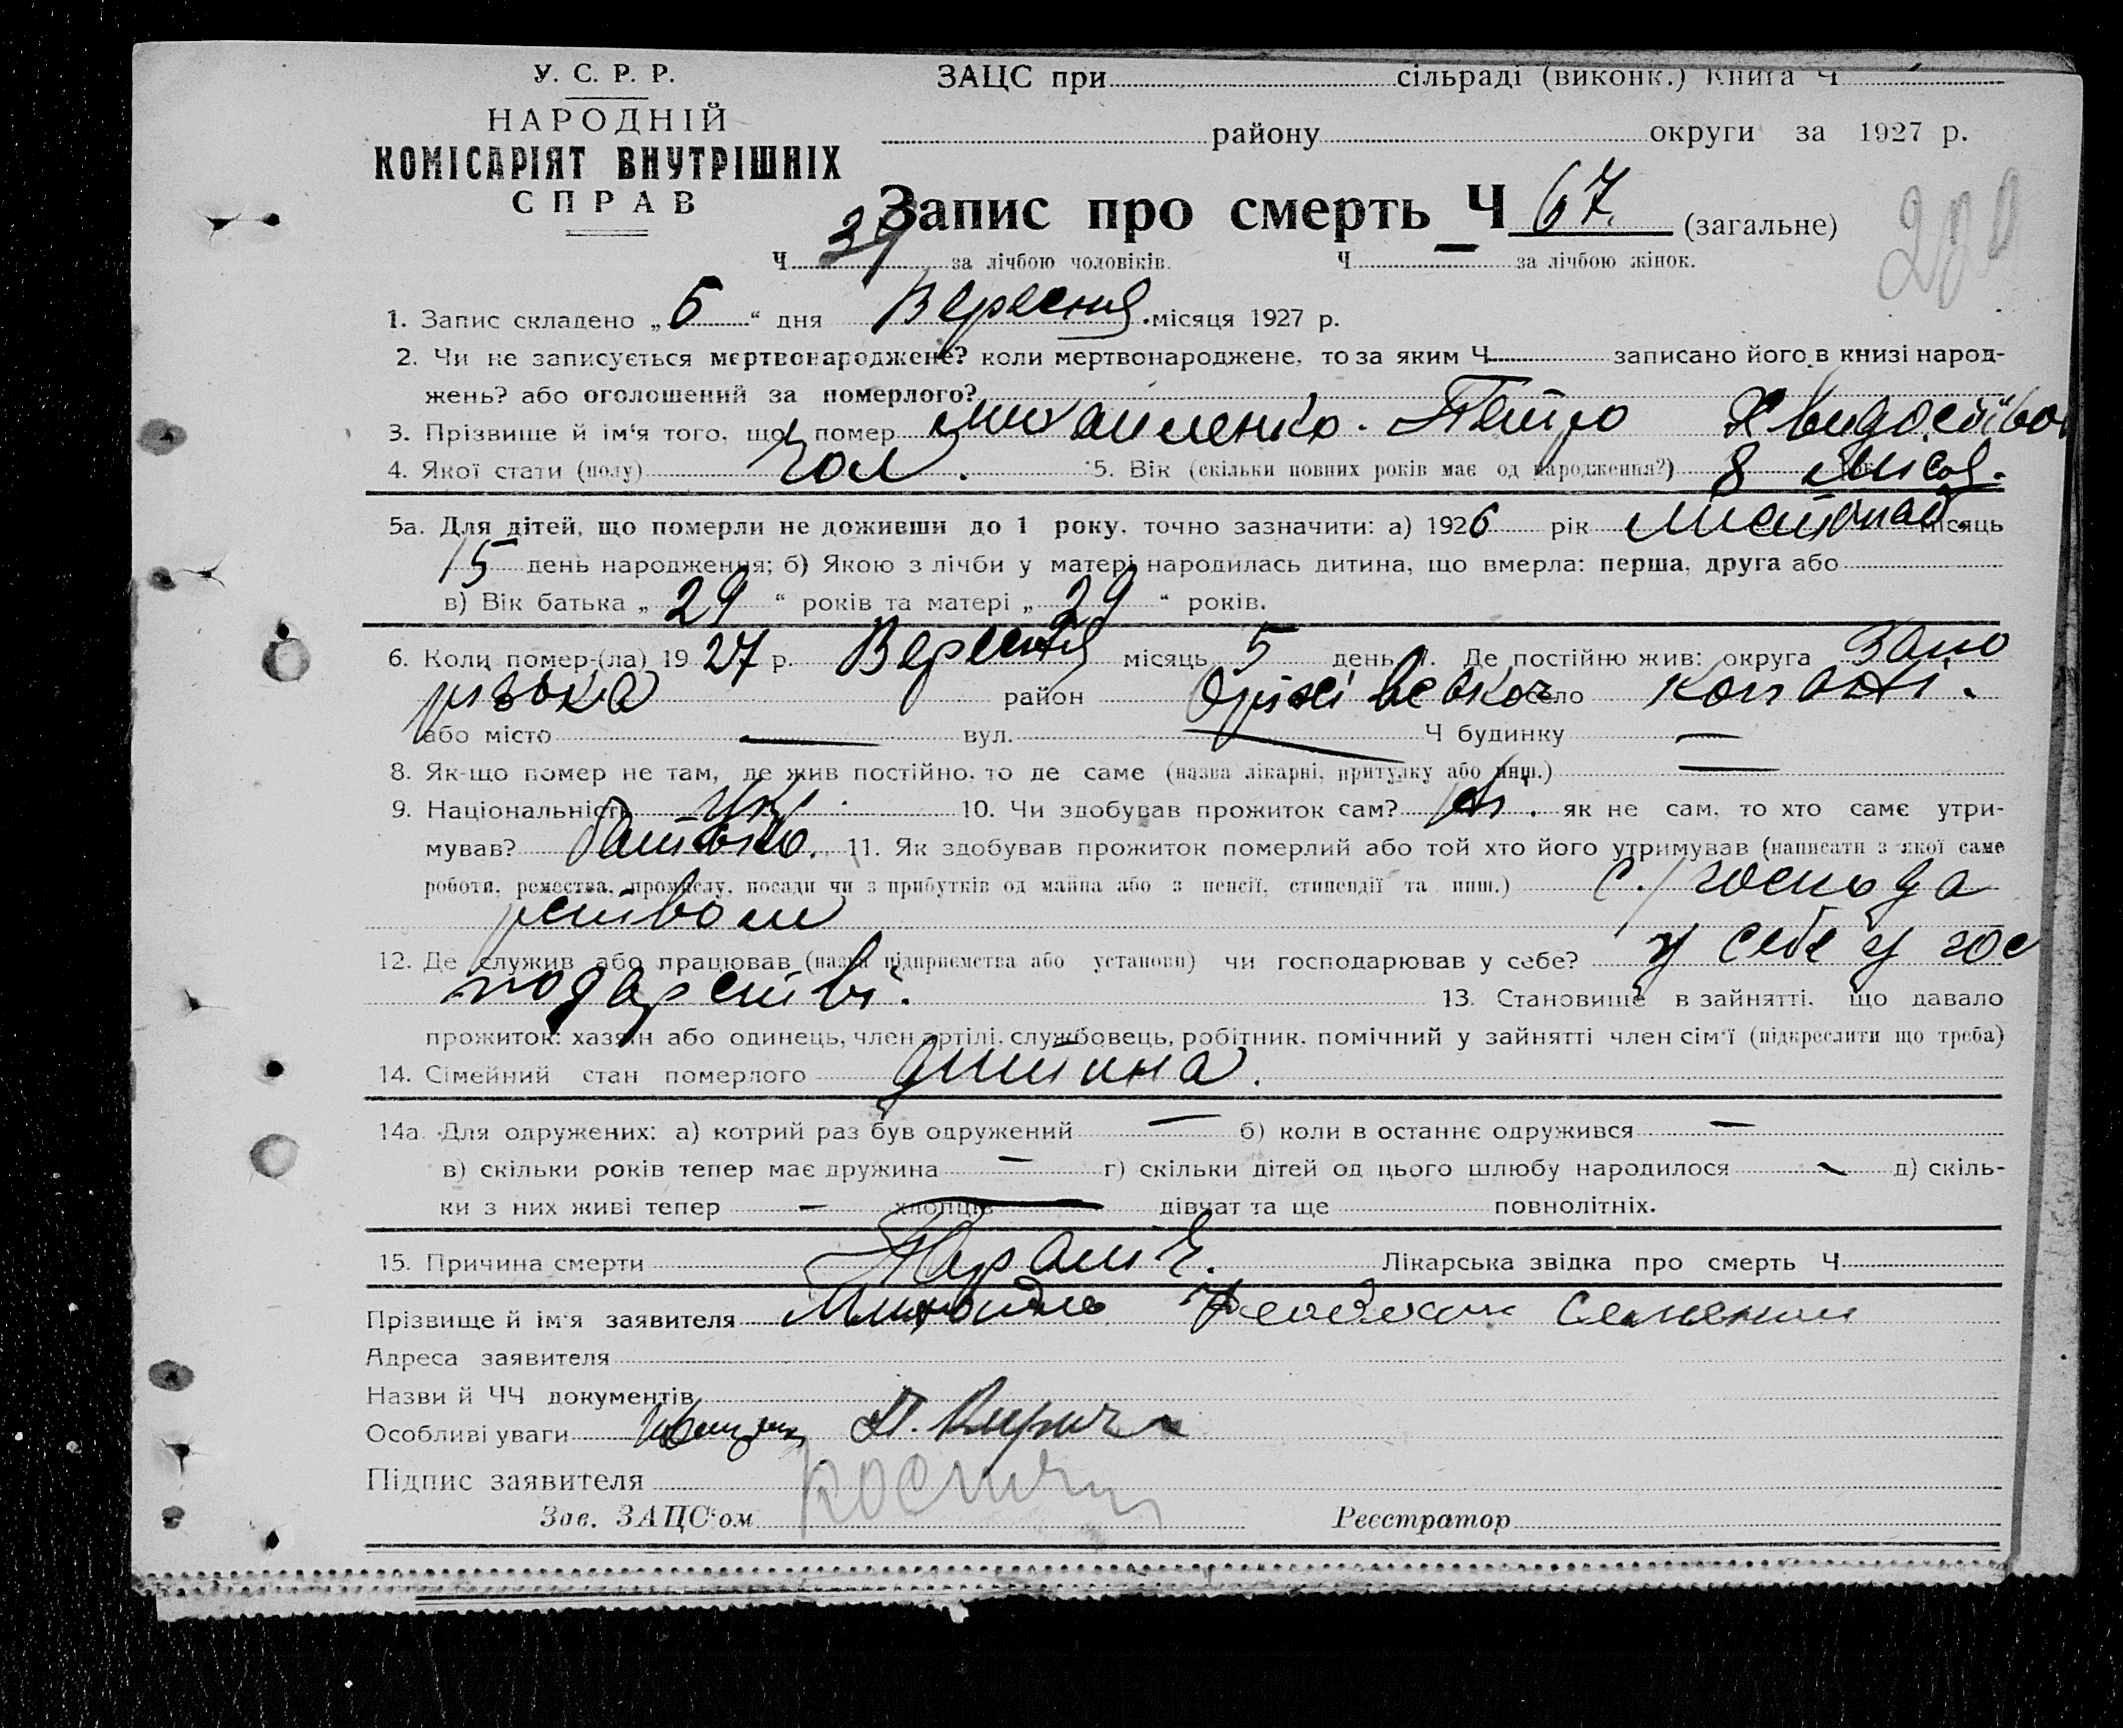 У. С. Р. Р.
НАРОДНІЙ
КОМІСАРІЯТ ВНУТРІШНІХ
СПРАВ
ЗАЦС при сільраді (виконк.) Книга Ч
району округи за 1927 р.
Запис про смерть Ч 67. (загальне)
Ч 37 за лічбою чоловіків. Ч — за лічбою жінок.
1. Запис складено „6“ дня Вересня місяця 1927 р.
2. Чи не записується мертвонароджене? коли мертвонароджене, то за яким Ч записано його в книзі народ-
жень? або оголошений за померлого?
3. Прізвище й ім'я того, що помер Михайленко. Петро
4. Якої стати (полу) Чол. 5. Вік (скільки повних років має од народження?) 8 міся.
5а. Для дітей, що померли не доживши до 1 року, точно зазначити: а) 1926 рік Листопад. місяць
15 день народження; б) Якою з лічби у матері народилась дитина, що вмерла: перша, друга або
в) Вік батька „29“ років та матері „29“ років.
6. Коли помер-(ла) 1927 р. Вересня місяць 5 день 7. Де постійно жив: округа Запо
різька район Оріхівсько село Копані.
або місто — вул. — Ч будинку —
8. Як-що помер не там, де жив постійно, то де саме (назва лікарні, притулку або инш.) —
9. Національність Укр. 10. Чи здобував прожиток сам? ні. як не сам, то хто саме утри-
мував? батько. 11. Як здобував прожиток померлий або той хто його утримував (написати з якої саме
роботи, ремества, промислу, посади чи з прибутків од майна або з пенсії, стипендії та инш.) С/господа
рством
12. Де служив або працював (назва підприємства або установи) чи господарював у себе? у себе у гос
подарстві. 13. Становище в зайнятті, що давало
прожиток: хазяїн або одинець, член артілі, службовець, робітник, помічний у зайнятті член сім'ї (підкреслити що треба)
14. Сімейний стан померлого дитина.
14а. Для одружених: а) котрий раз був одружений — б) коли в останнє одружився —
в) скільки років тепер має дружина — г) скільки дітей од цього шлюбу народилося — д) скіль-
ки з них живі тепер — хлопців — дівчат та ще повнолітніх.
15. Причина смерти Лікарська звідка про смерть Ч
Прізвище й ім'я заявителя
Адреса заявителя
Назви й ЧЧ документів
Особливі уваги
Підпис заявителя
Зав. ЗАЦС'ом Реєстратор